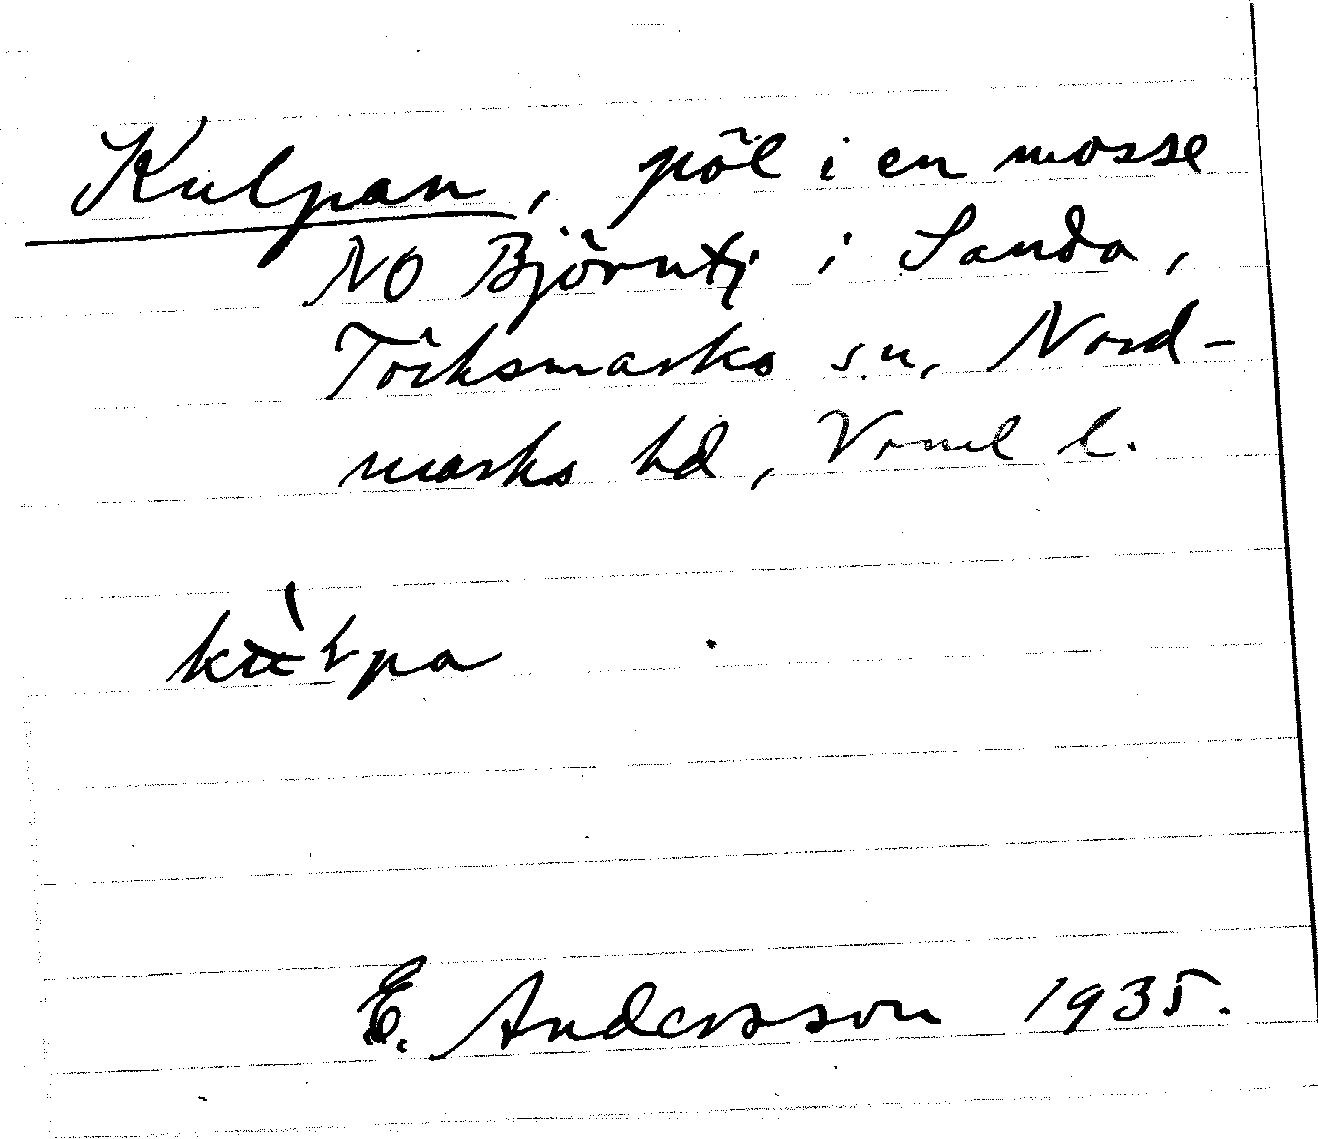 Kulpan, pöl i en mosse
NO Björntj i Sanda,
Töcksmarks sn, Nord-
marks hd, Vrml l.
E. Andersson 1935.